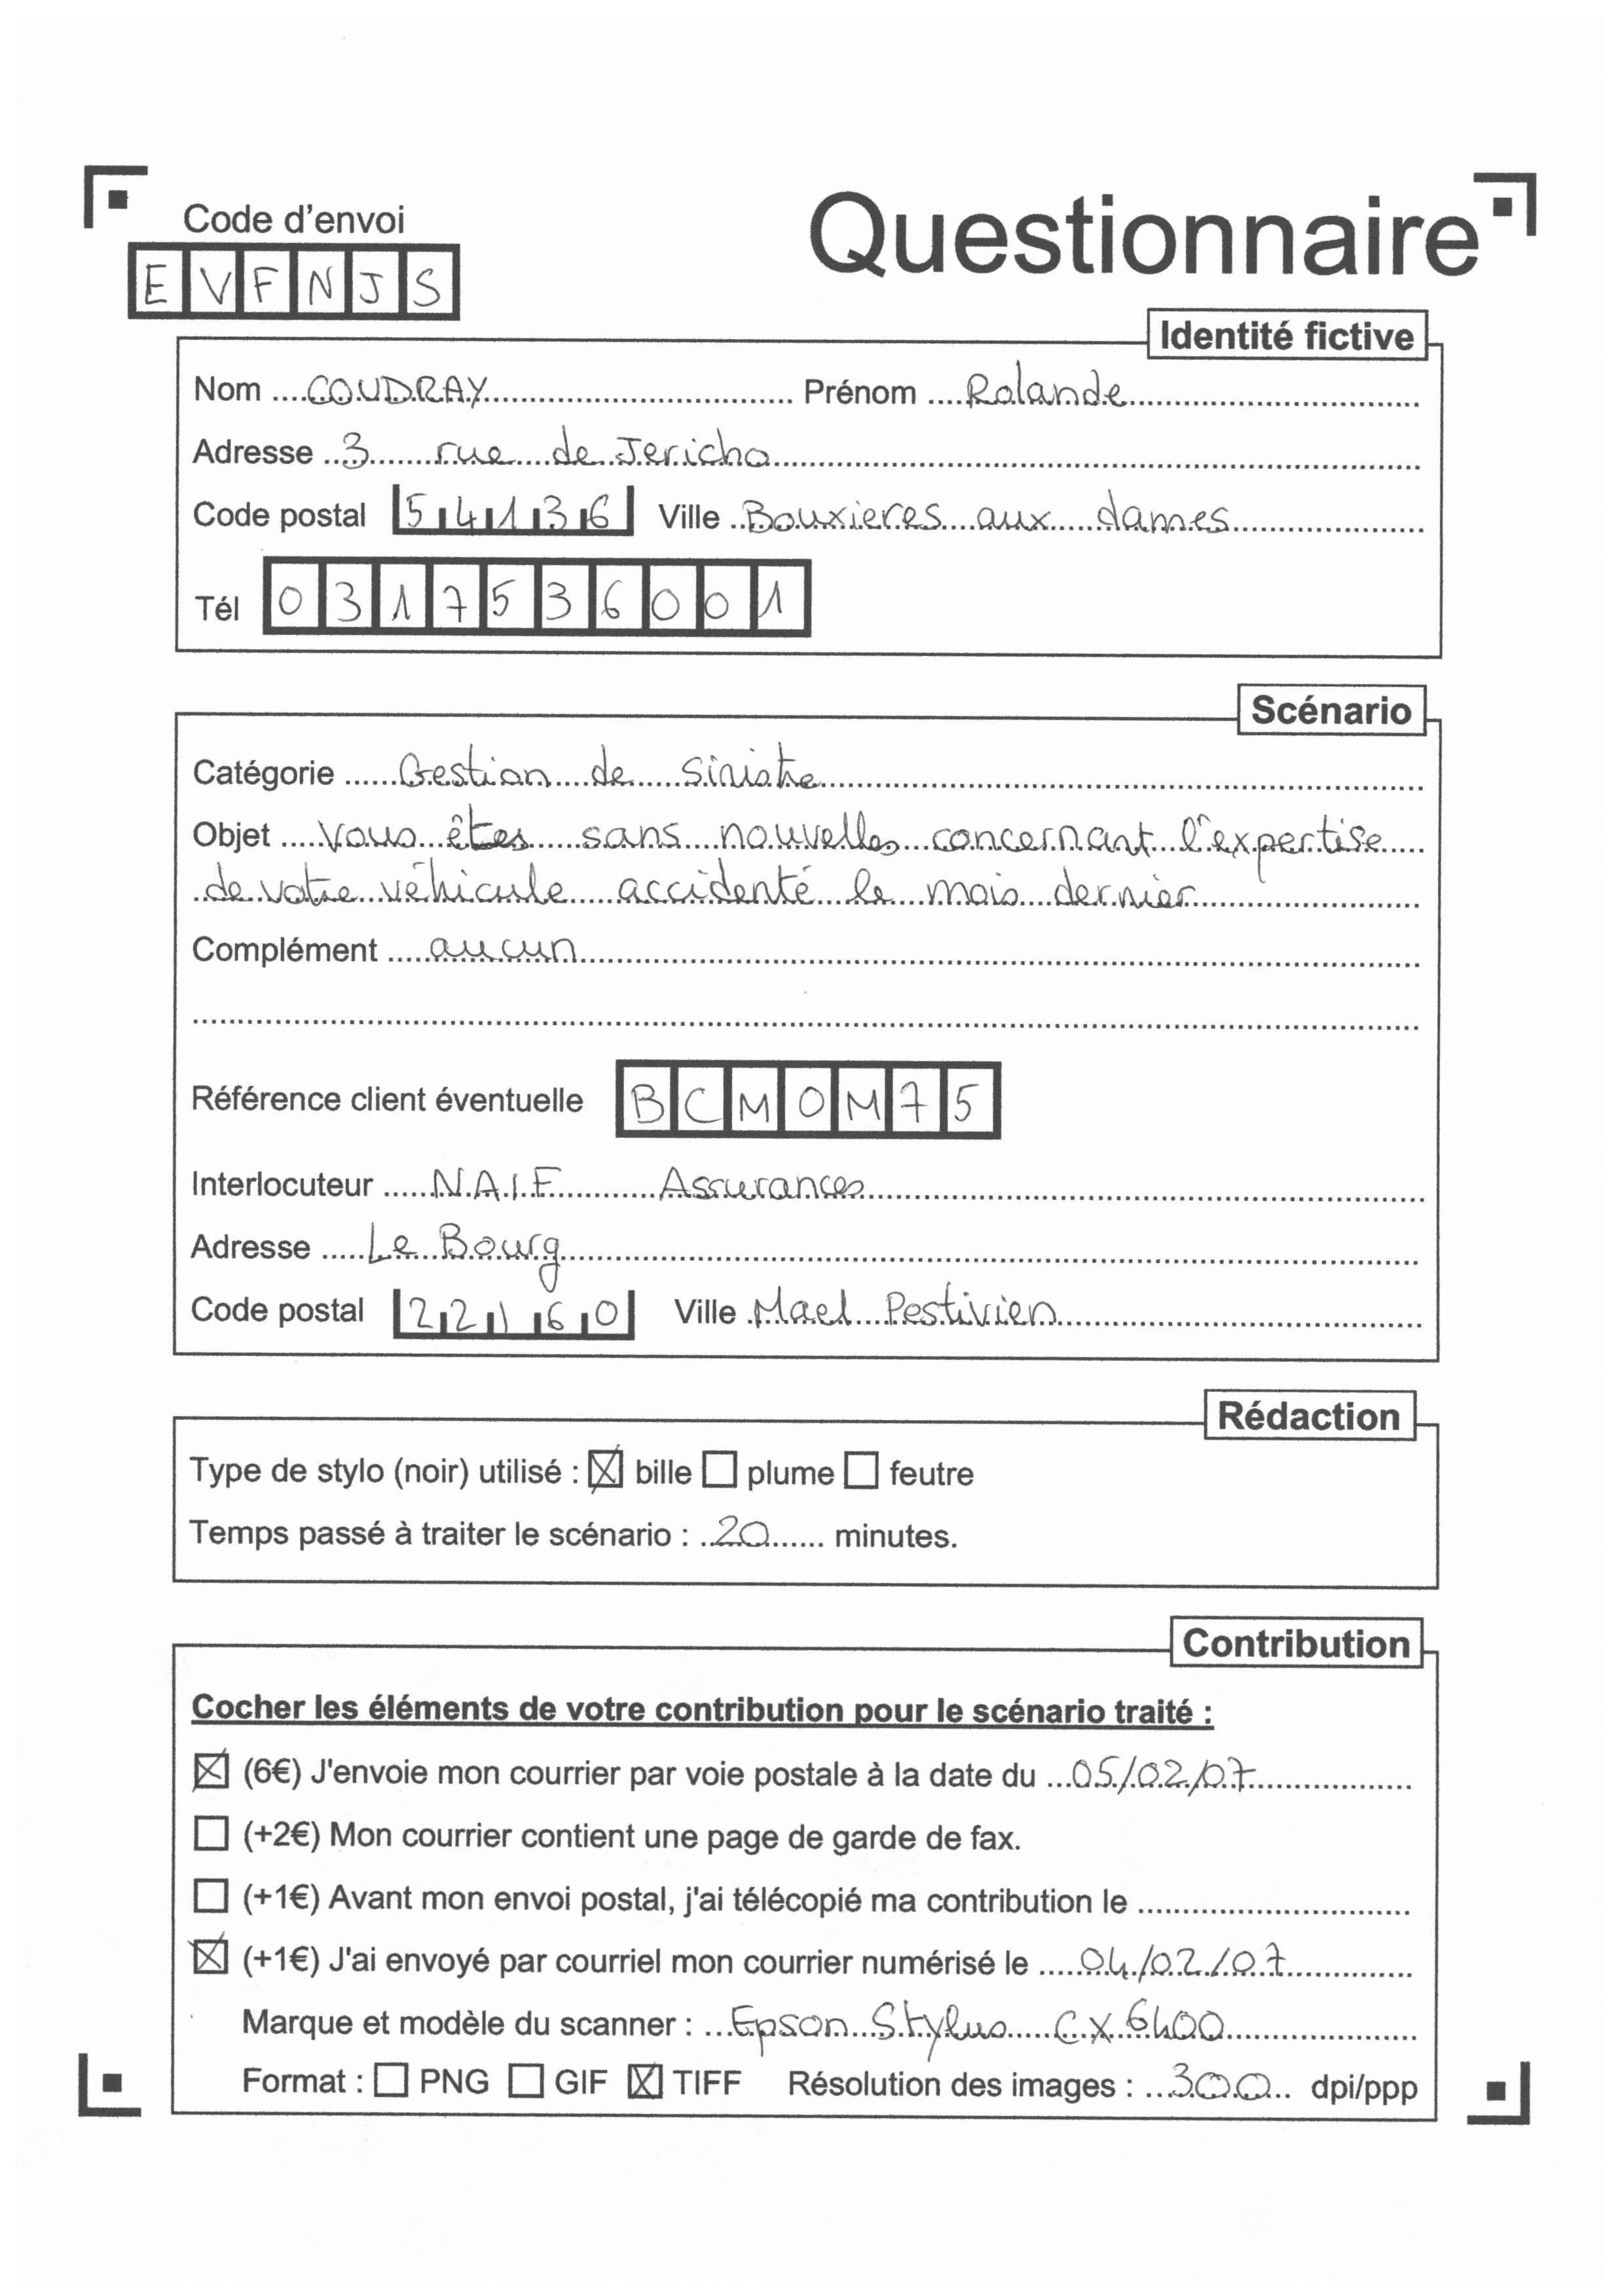 Code d'envoi
Questionnaire
EVFNJS
Identité fictive
Nom ....COUDRAY.... Prénom ....Rolande....
Adresse ..3 rue de Jericho....
Code postal 54136 Ville ..Bouxieres aux dames....
Tél 0317536001
Scénario
Catégorie ....Gestion de sinistre....
Objet ....Vous êtes sans nouvelles concernant l'expertise....
de votre véhicule accidenté le mois dernier....
Complément ....aucun....
Référence client éventuelle BCMOM75
Interlocuteur ....N.A.I.F Assurances....
Adresse ....Le Bourg....
Code postal 22160 Ville .Mael Pestivien....
Rédaction
Type de stylo (noir) utilisé : ☒ bille ☐ plume ☐ feutre
Temps passé à traiter le scénario : ..20.... minutes.
Contribution
Cocher les éléments de votre contribution pour le scénario traité :
☒ (6€) J'envoie mon courrier par voie postale à la date du ...05/02/07....
☐ (+2€) Mon courrier contient une page de garde de fax.
☐ (+1€) Avant mon envoi postal, j'ai télécopié ma contribution le ....
☒ (+1€) J'ai envoyé par courriel mon courrier numérisé le ....04/02/07....
Marque et modèle du scanner : ...Epson Stylus CX 6400....
Format : ☐ PNG ☐ GIF ☒ TIFF Résolution des images : ...300... dpi/ppp